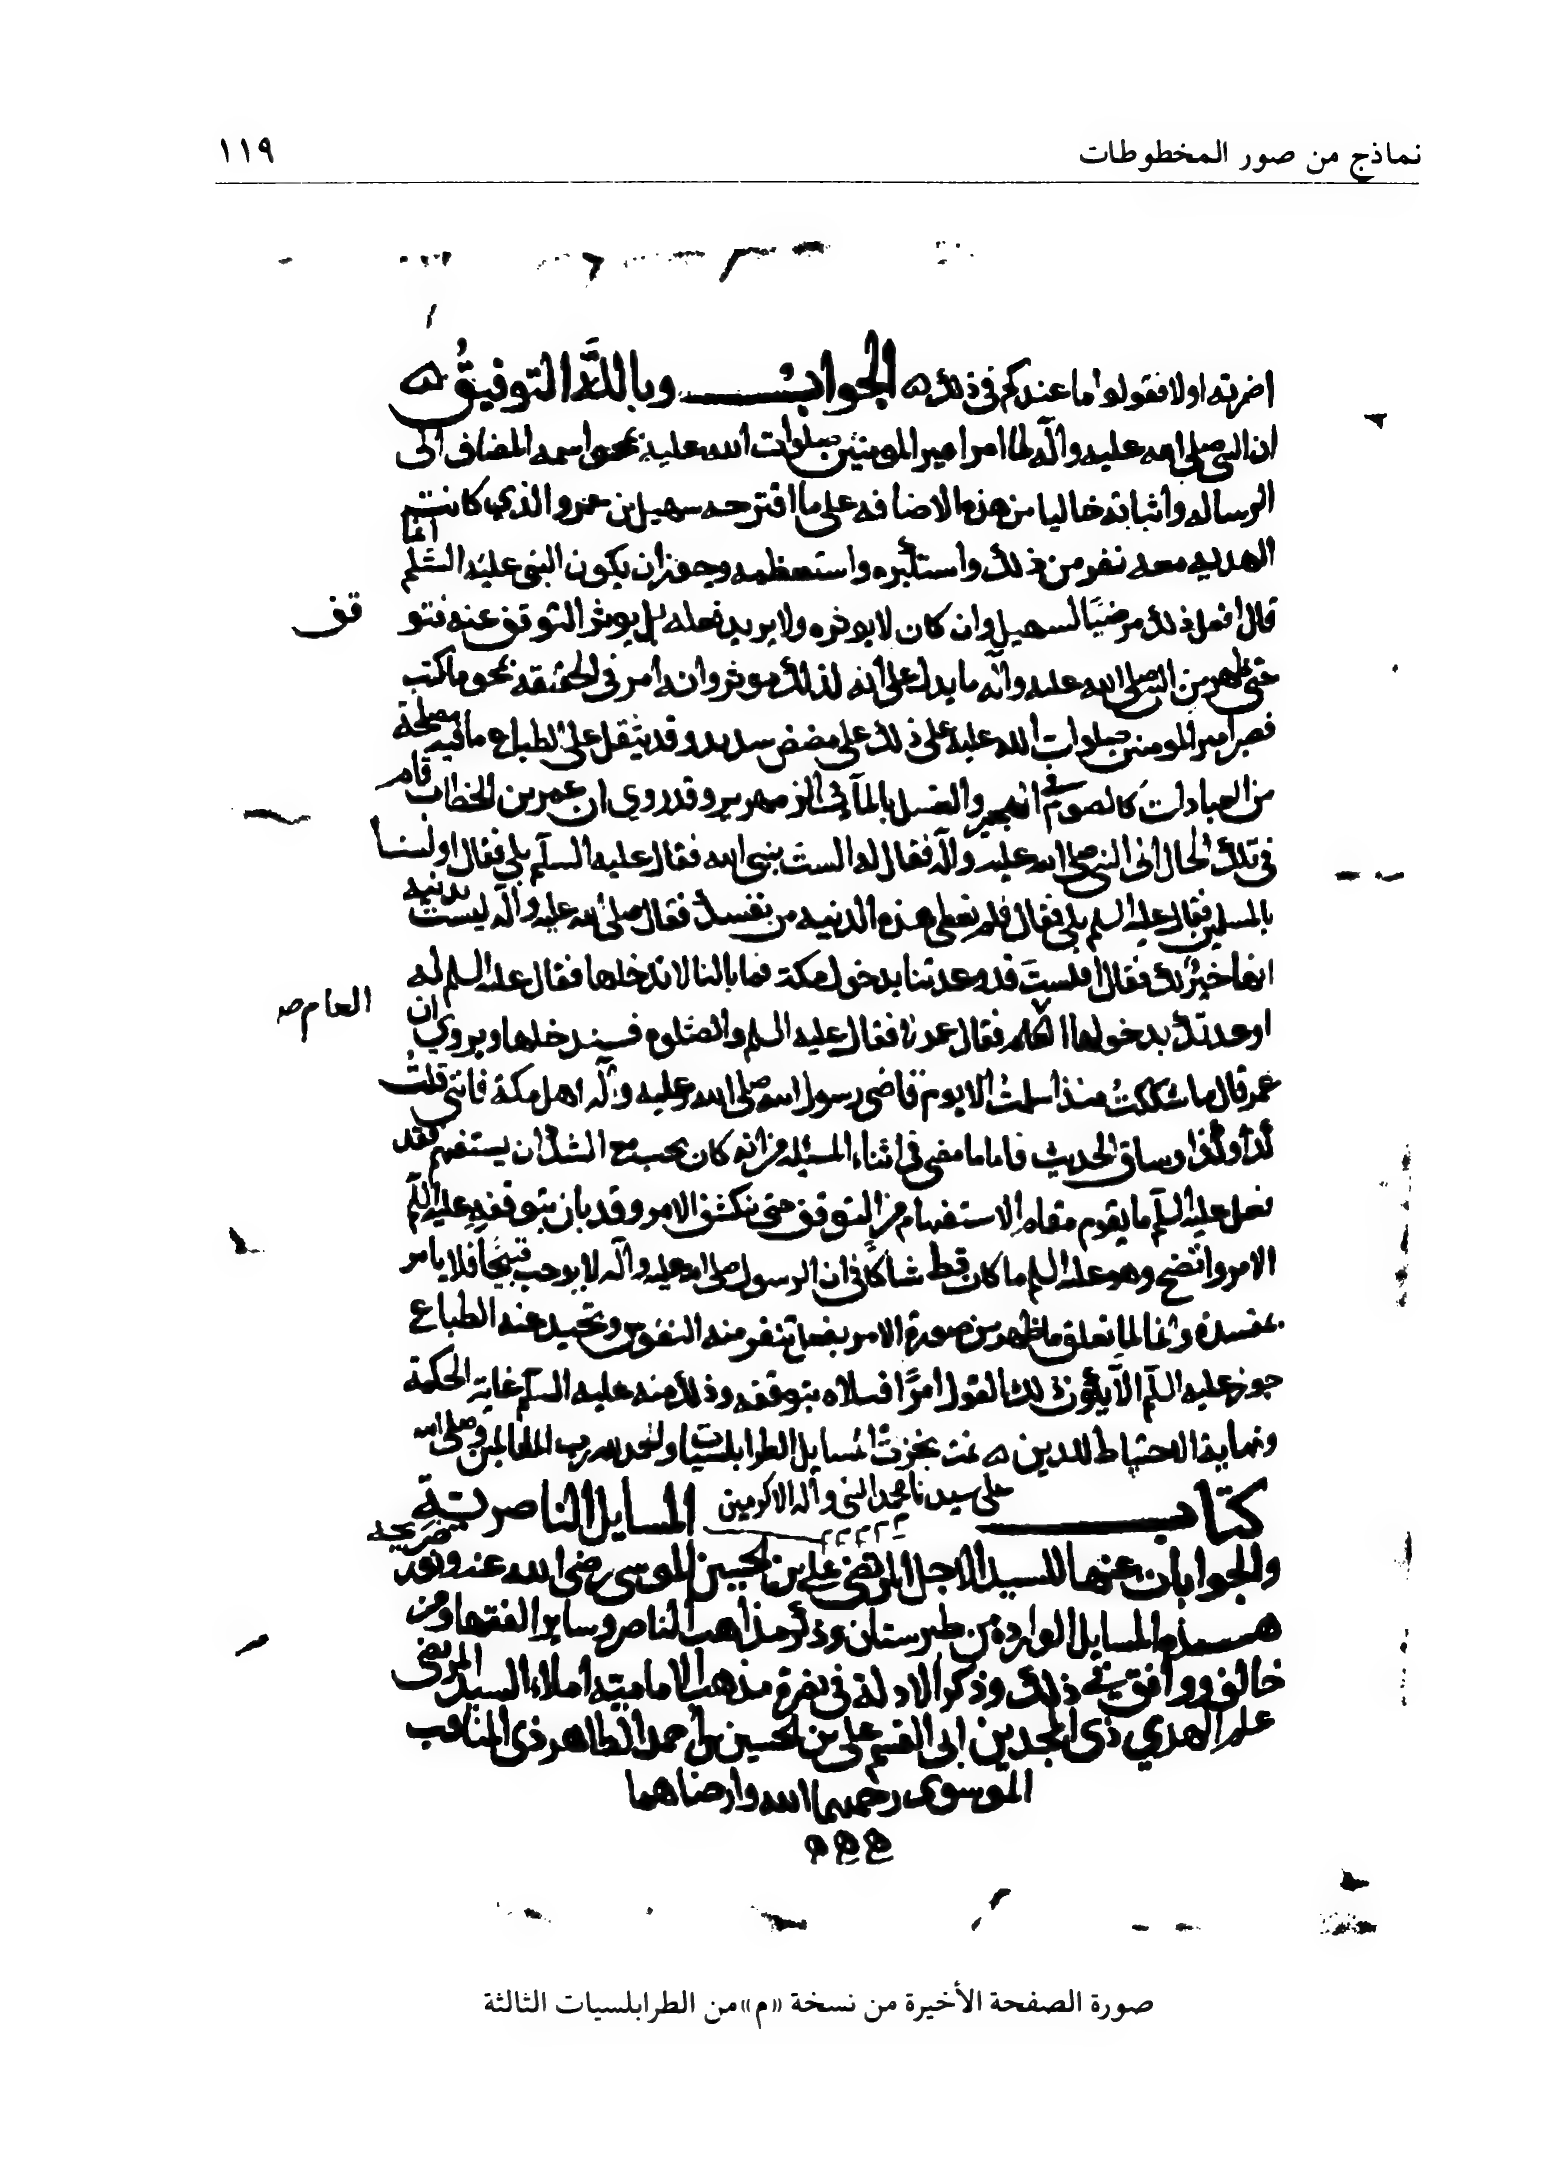 نماذج من صور المخطوطات ١١٩
اولا فقولوا ما عندكم في ذلك الجواب وبالله التوفيق
ان النبي صلى الله عليه وآله لما امر امير المومنين صلوات الله عليه بمحو اسمه المضاف الى
الرساله واثباته خاليا من هذه الاضافه على ما اقترحه سهيل بن عمرو الذي كانت
الهدنة معه نفر من ذلك واستكبره واستعظمه وجوز ان يكون النبي عليه السلم انما
قال افعل ذلك مرضيا لسهيل وان كان لا يوثره ولا يريد فعله بل يوثر التوقف عنه فتو
قف
حتى ظهر من النبي صلى الله عليه وآله ما يدل على انه لذلك موثر وانه امر في الحقيقه بمحو ما كتب
فصبر امير المومنين صلوات الله عليه على ذلك على مضض شديد وقد يثقل على الطباع ما فيه مصلحة
من العبادات كالصوم في الهجير والغسل بالمآ في الزمهرير وقد روي ان عمر بن الخطاب قام
في تلك الحال الى النبي صلى الله عليه وآله فقال له الست بنبي الله فقال عليه السلم بلى فقال اولسنا
بالمسلمين فقال عليه السلم بلى فقال فلم نعطي هذه الدنيه من نفسك فقال صلى الله عليه وآله ليست بدنيه
انها خير لك فقال افلست قد وعدتنا بدخول مكة فما بالنا لا ندخلها فقال عليه السلم له
اوعدتك بدخولها العام فقال عمر لا فقال عليه السلم والصلوه فسندخلها ويروي ان
العام صـ
عمر قال ما شككت منذ اسلمت الا يوم قاضى رسول الله صلى الله عليه وآله اهل مكة فانني قلت
كذا وكذا وساق الحديث فاما ما مضى في اثناء المسئله من انه كان يجب مع الشك ان يستفهم فقد
فعل عليه السلم ما يقوم مقام الاستفهام من التوقف حتى ينكشف الامر وقد بان بتوقفه عليه السلم
الامر واتضح وهو عليه السلم ما كان قط شاكا في ان الرسول صلى الله عليه وآله لا يوجب قبيحا فلا يامر
بمفسدة وانما لما تعلق ما ظهر من صورة الامر بفعل تنفر منه النفوس وتحيد عنه الطباع
جوز عليه السلم الا يكون ذلك القول امرا فتلاه بتوقفه وذلك منه عليه السلم غاية الحكمة
ونهاية الاحتياط للدين تمت نجزت المسايل الطرابلسيات والحمد لله رب العالمين وصلى الله
على سيدنا محمد النبي وآله الاكرمين
كتاب المسايل الناصرية
والجوابات عنها للسيد الاجل المرتضى علي بن الحسين الموسوي رضي الله عنه ونور ضريحه
هذه المسايل الوارده من طبرستان وذكر مذاهب الناصر وساير الفقهاء ومن
خالف ووافق في ذلك وذكر الادلة في نصرة مذهب الامامية املاء السيد المرتضى
علم الهدي ذي المجدين ابى القسم على بن الحسين بن أحمد الطاهر ذى المناقب
الموسوي رحمهما الله وارضاهما
صورة الصفحة الأخيرة من نسخة «م» من الطرابلسيات الثالثة